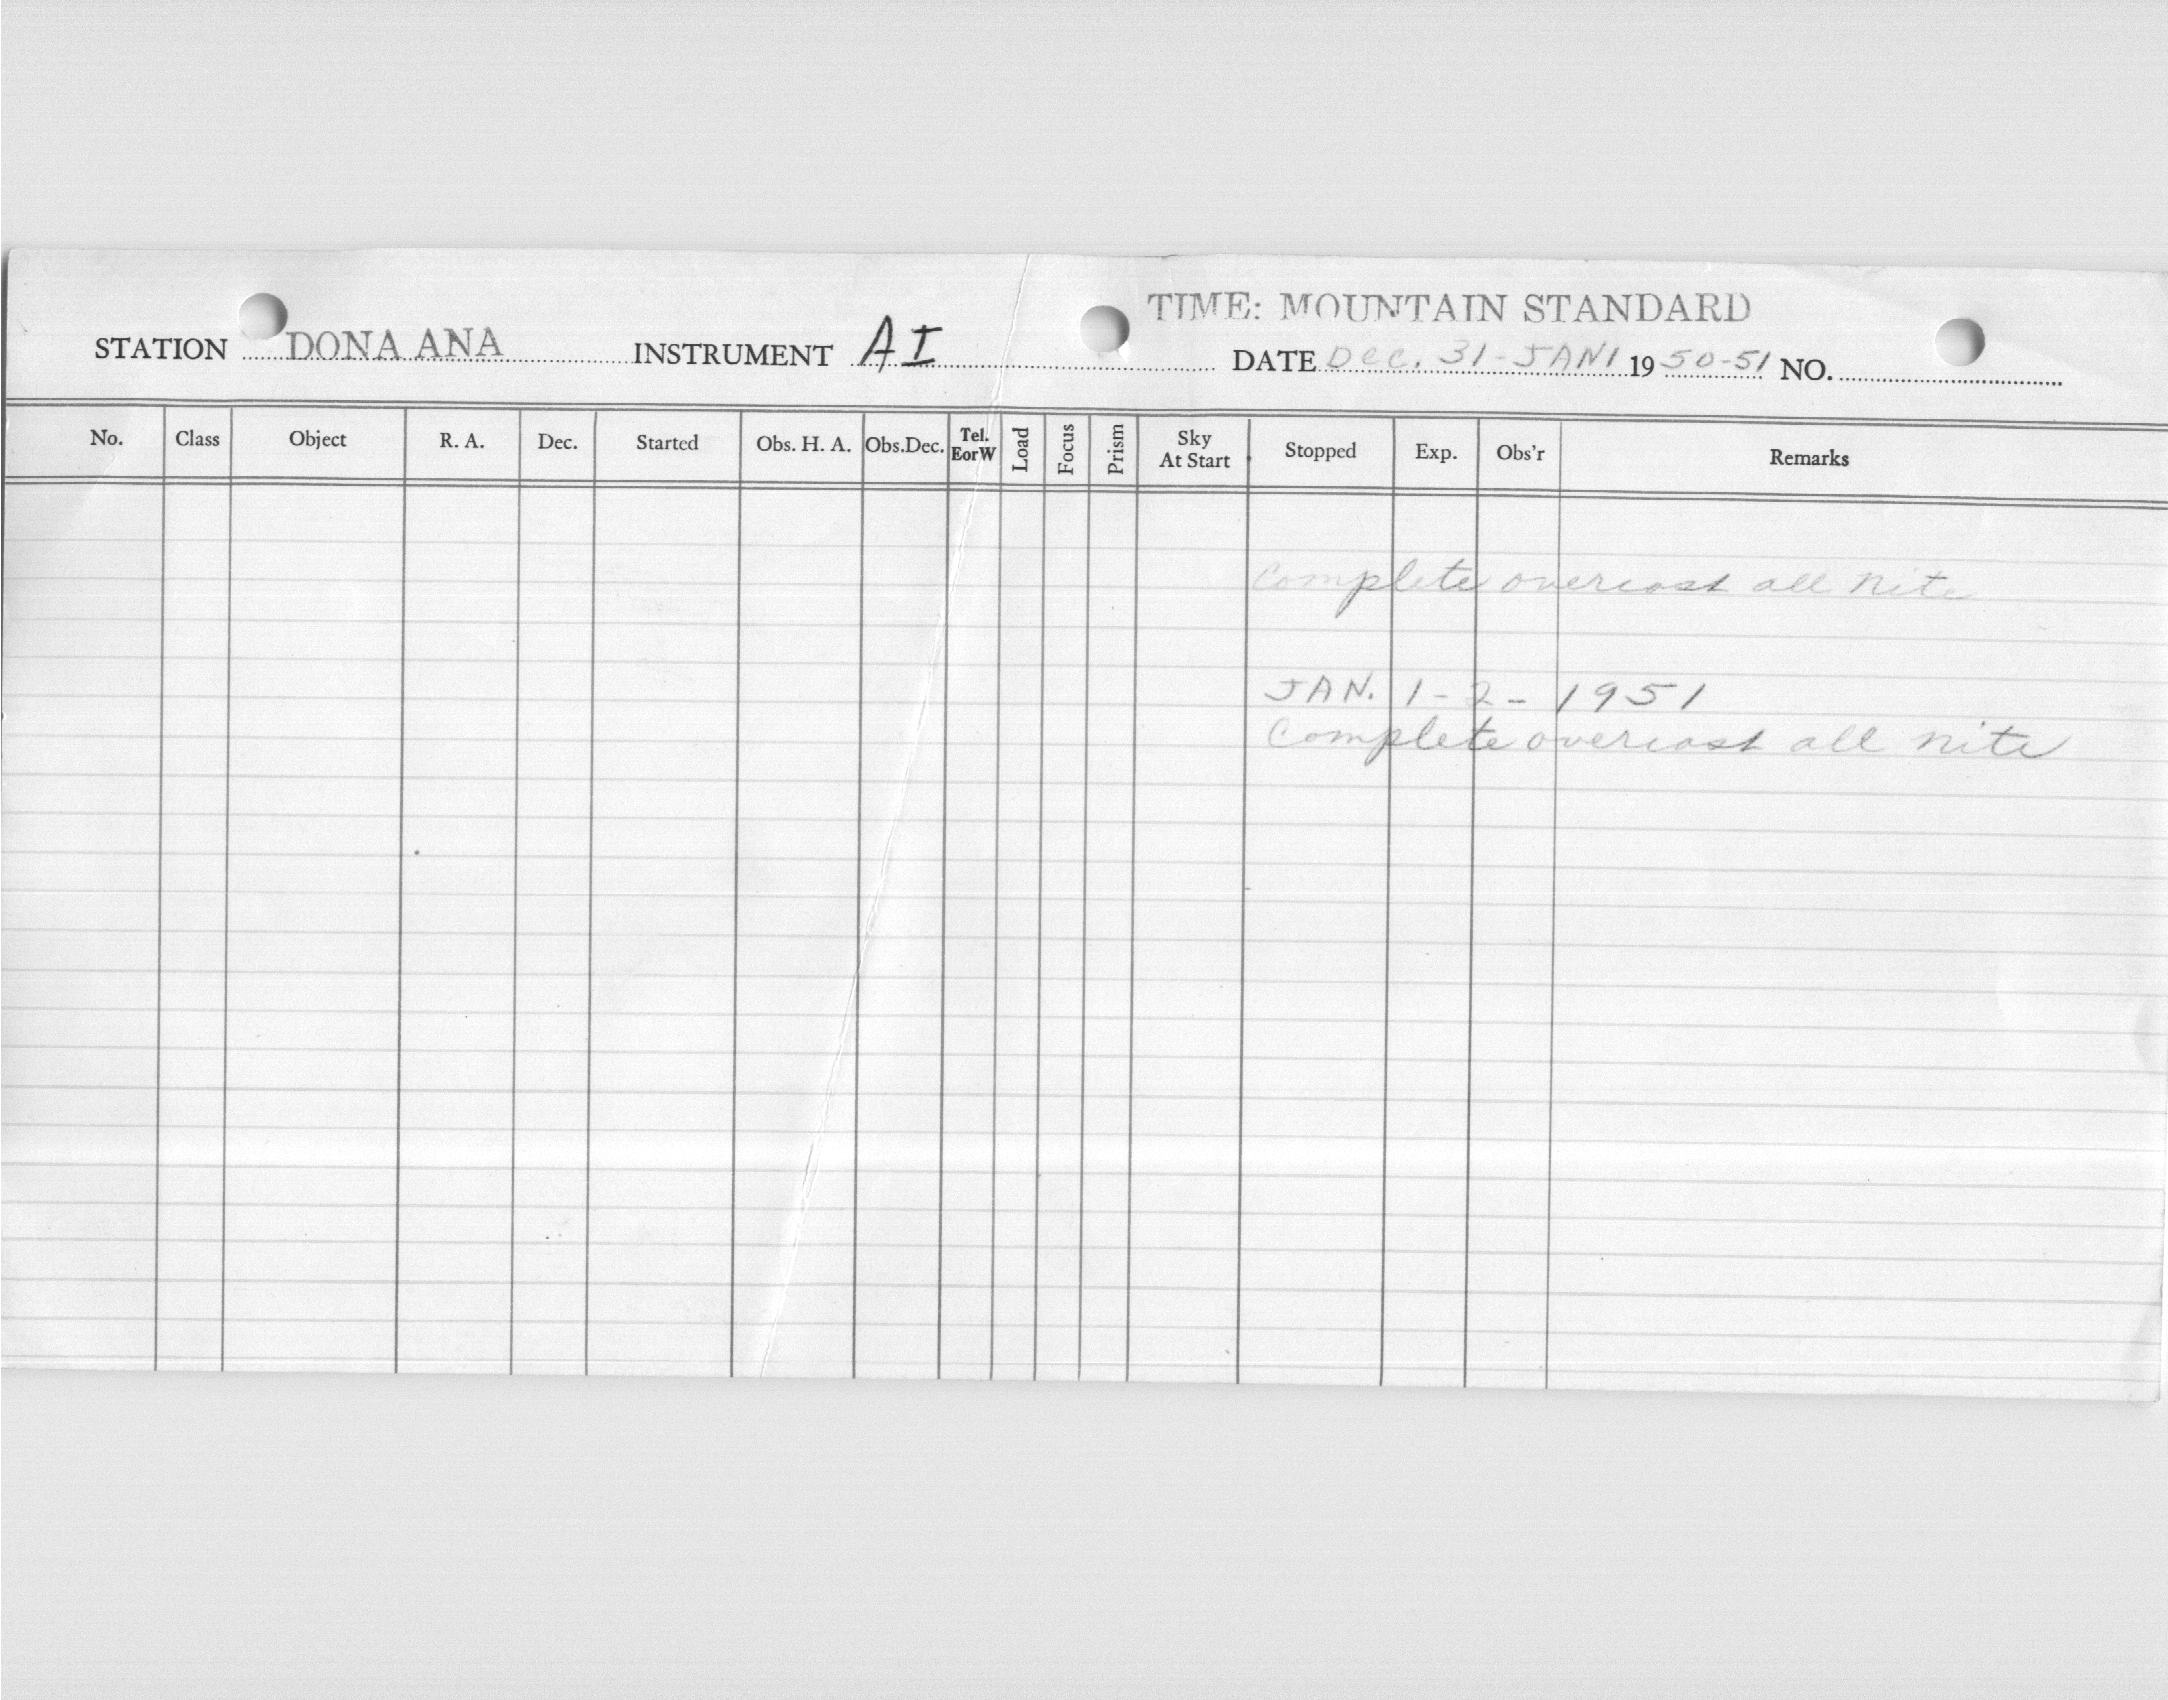 TIME: MOUNTAIN STANDARD
STATION DONA ANA INSTRUMENT AI DATE DEC. 31-JAN 1 1950-51 NO.
No. Class Object R. A. Dec. Started Obs. H. A. Obs.Dec. Tel. EorW Load Focus Prism Sky At Start Stopped Exp. Obs'r Remarks
Complete overcast all nite
JAN. 1-2-1951
Complete overcast all nite